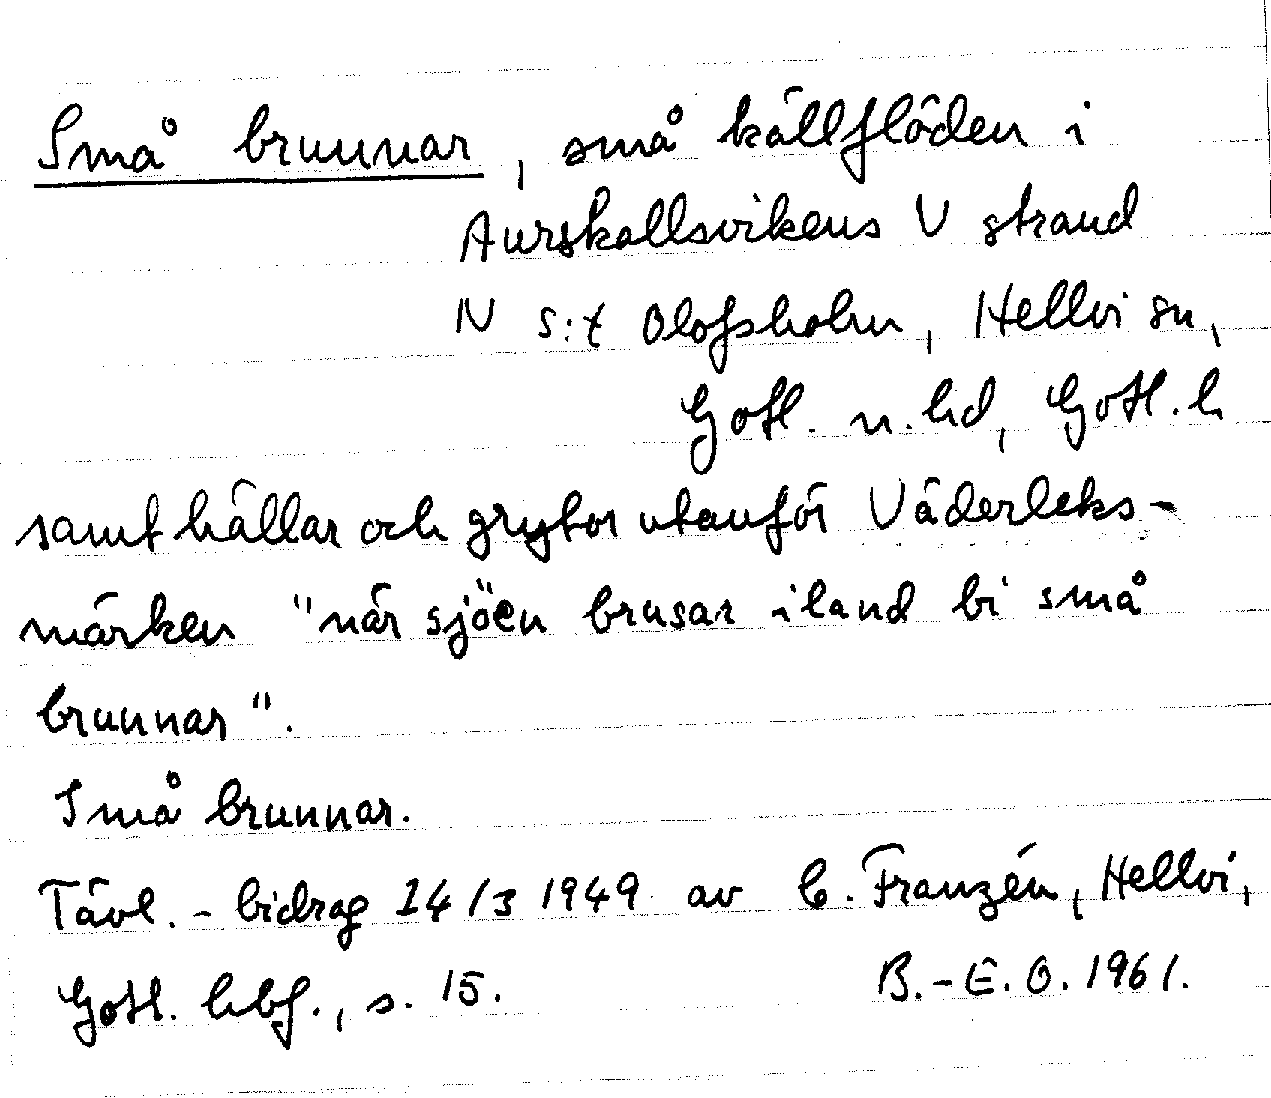 Små brunnar, små källflöden i
Aurskallsvikens V strand
N s:t Olofsholm, Hellvi sn,
Gotl. n. hd, Gotl. l.
samt hällar och grytor utanför Väderleks-
märken "när sjöen brusar iland bi små
brunnar".
Små brunnar.
Tävl.-bidrag 14/3 1949 av C. Franzén, Hellvi,
Gotl. hbf., s. 15. B.-E. O. 1961.